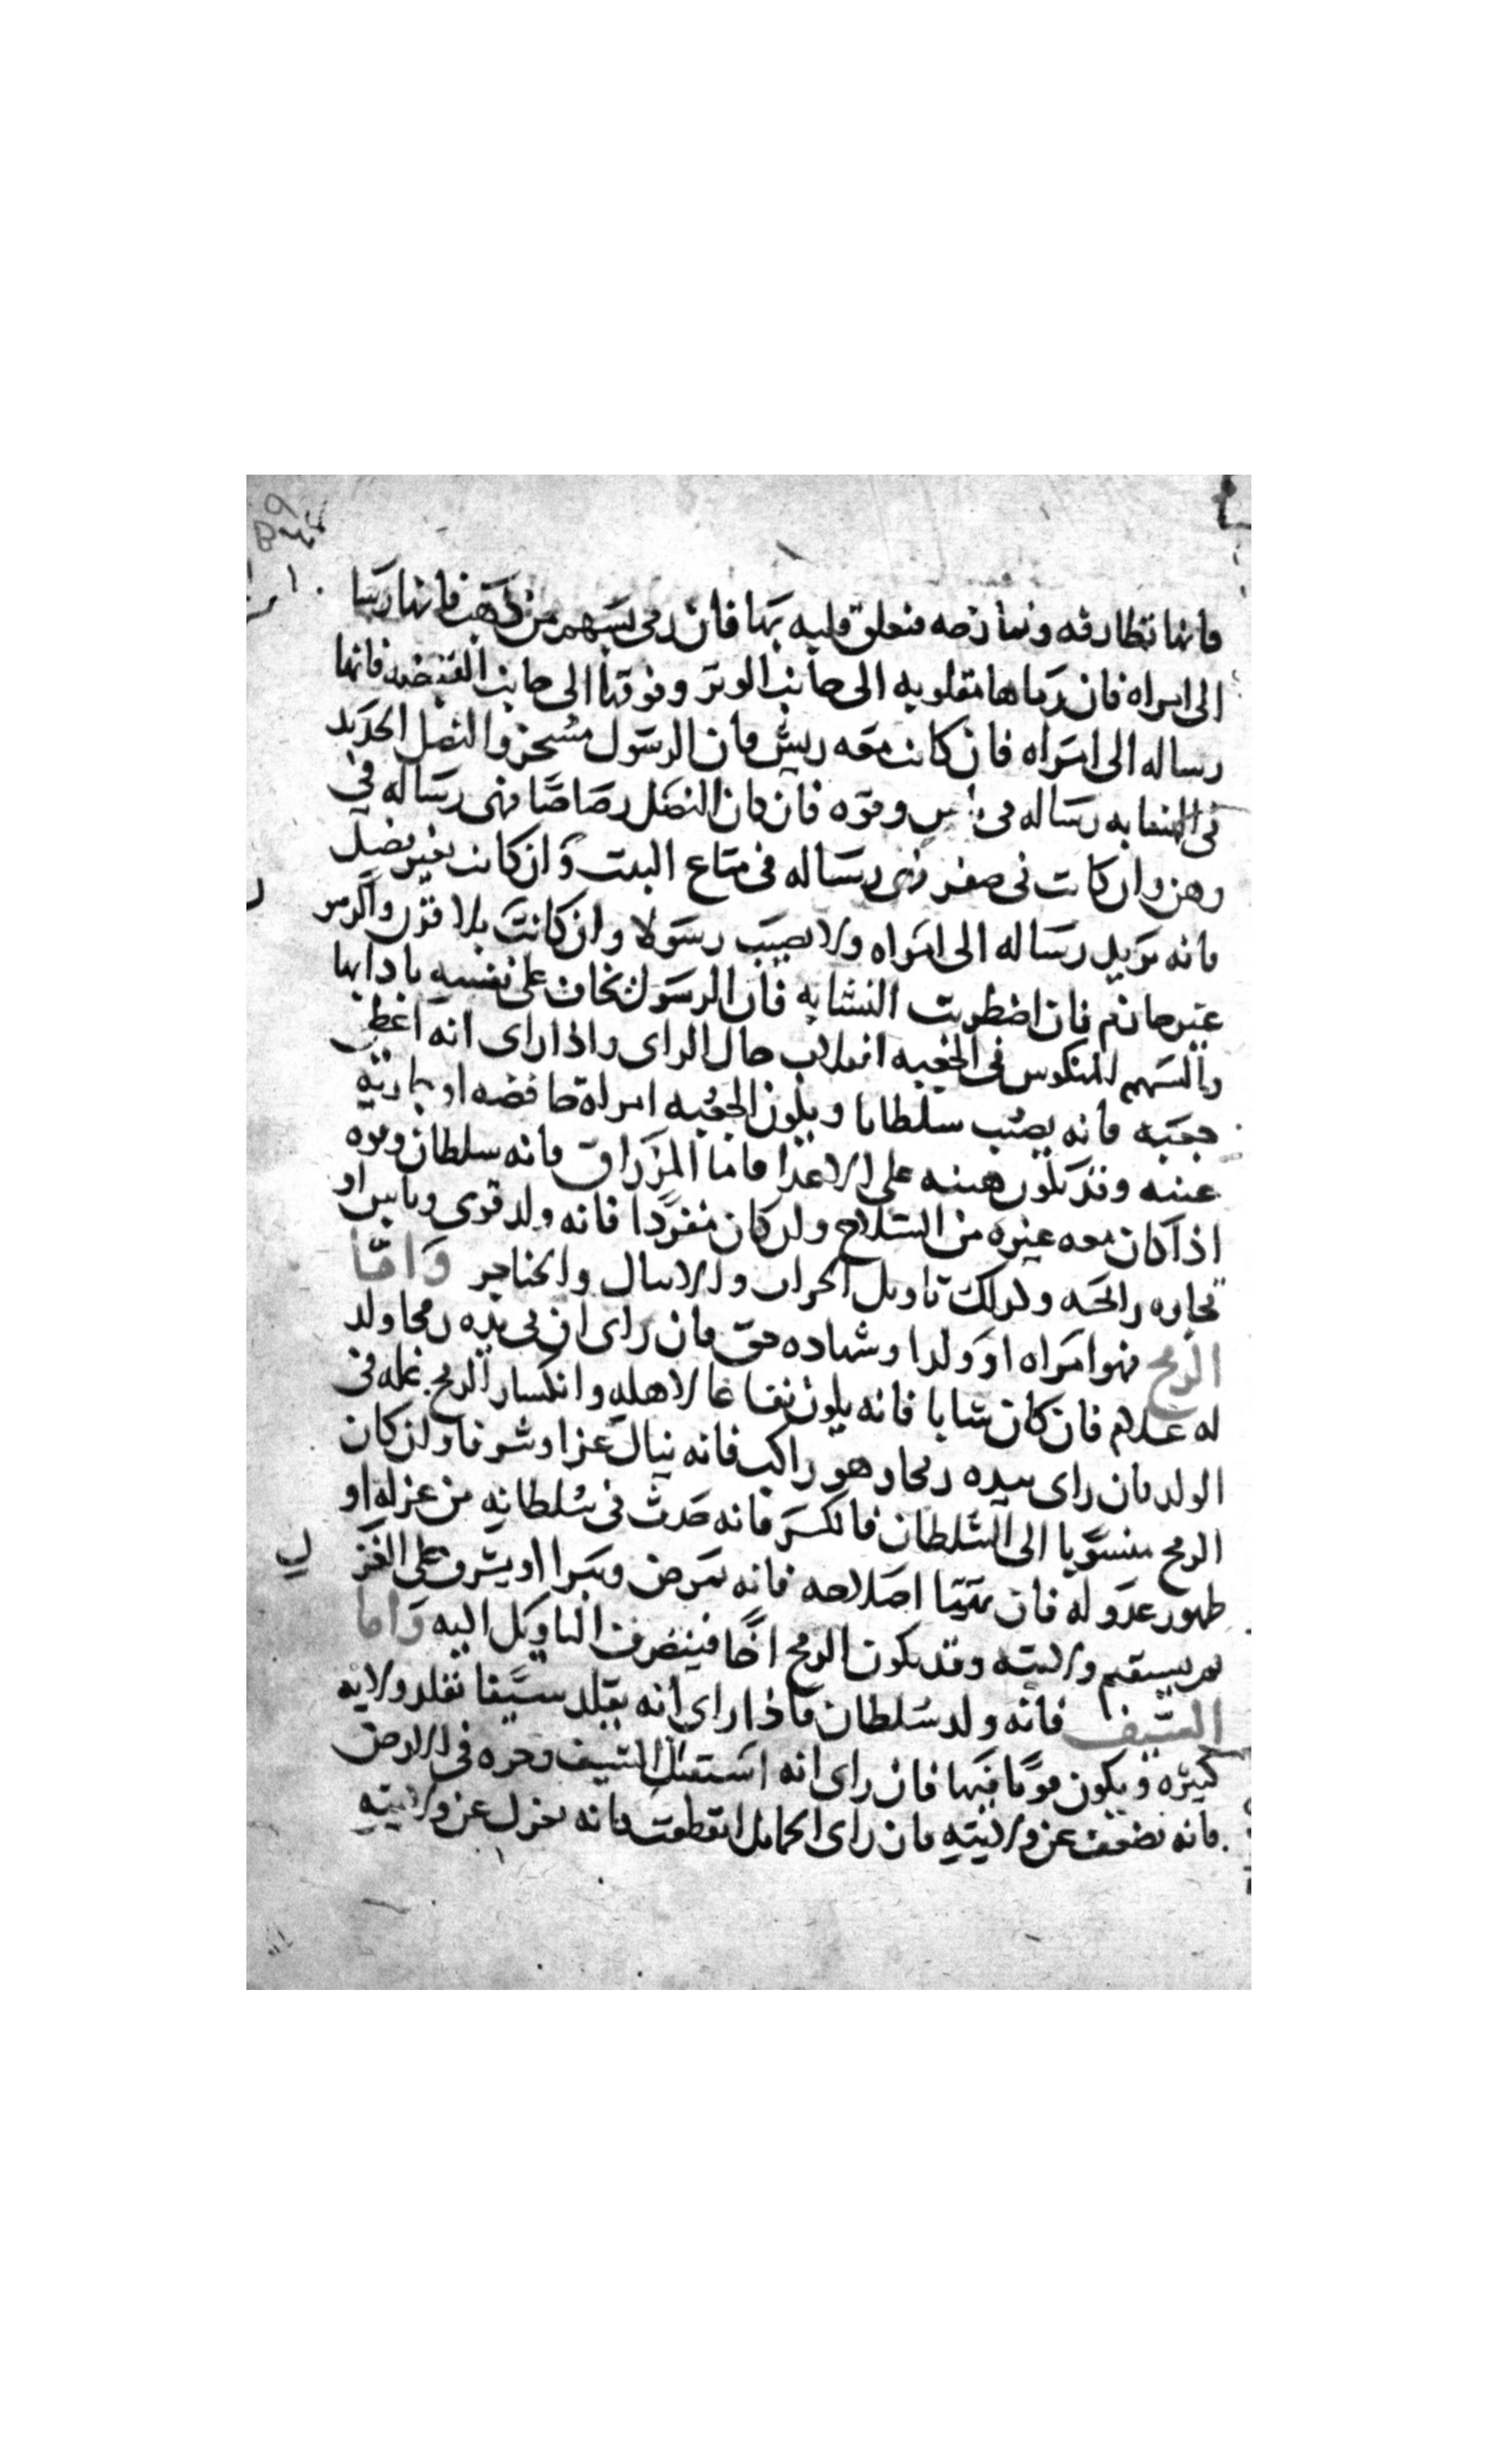 فانها تطارفه وتمازحه فتعلق قلبه بها فان رمى بسهم من ذهب فانها رسا
الى امراه فان رماها مقلوبه الى جانب الوتر وفوقها الى جانب القبضه فانها
رساله الى امراه فان كانت معه ريش فان الرسول مسحر والنصل الحديد
فى النشابه رساله فى باس وقوه فان كان النصل رصاصا فهى رساله فى
وهن وان كانت فى صفر فهى رساله فى متاع البيت وان كانت بغير نصل
فانه يريد رساله الى امراه ولا يصيب رسولا وان كانت بلا فوق والرسو
غير حازم فان اضطربت النشابه فان الرسول يخاف على نفسه بادايها
والسهم المنكوس فى الجعبه انقلاب حال الراى واذا راى انه اعطى
جعبه فانه يصيب سلطانا ويكون الجعبه امراة حافضه او جاريه
وقد تكون هيبه على الاعدا فاما المزراق فانه سلطان وقوه
اذا كان معه غيره من السلاح ولن كان مفردا فانه ولد قوى وباس او
تجاره رابحه وكذلك تاويل الحراب والاسال والخناجر واما
الرمح فهو امراه او ولدا وشهاده حق فان راى ان بى يده رمحا ولد
له غلام فان كان شابا فانه يكون نفاعا لاهله وانكسار الرمح عله فى
الولد فان راى بيده رمحا وهو راكب فانه ينال عزا وشرفا ولن كان
الرمح منسوبا الى السلطان فانكسر فانه حدث فى سلطانه من عزله او
ظهور عدو له فان تهيّا اصلاحه فانه يمرض ويبرا او يشرف على العز
ثم يستقيم ولايته وقد يكون الرمح اخا فينصرف التاويل اليه واما
السيف فانه ولد سلطان فاذا راى انه تقلد سيفا تقلد ولايه
كبيره ويكون قويا فيها فان راى انه استقل السيف وجره فى الارض
فانه يضعف عن ولايته فان راى الحمايل انقطعت فانه يعزل عن ولايته